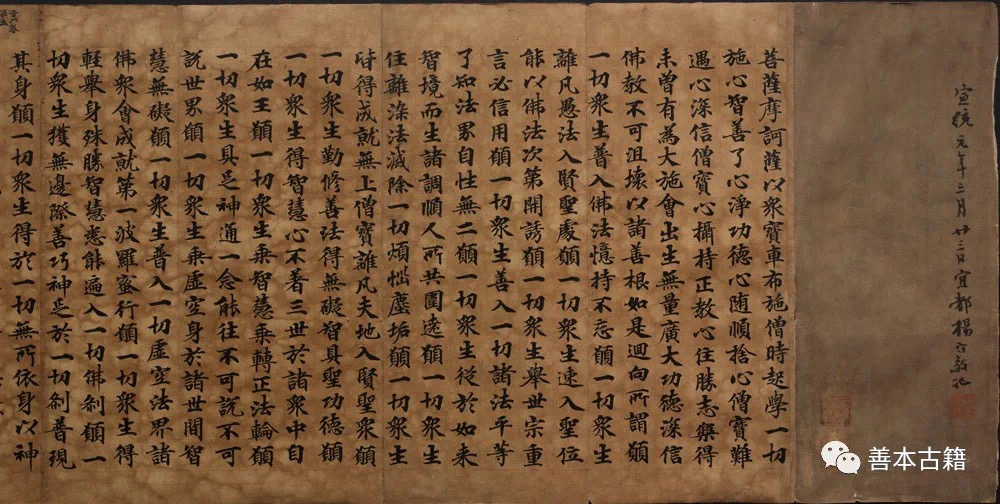 宣統元年三月廿三日宜都楊守敬記
菩薩摩訶薩以衆寶車布施僧時起學一切
施心智善了心淨功德心随順捨心僧寶難
遇心深信僧寶心攝持正教心住勝志樂得
未曾有為大施會出生無量廣大功德深信
佛教不可沮壞以諸善根如是迴向所謂願
一切衆生普入佛法憶持不忘願一切衆生
離凡愚法入賢聖處願一切衆生速入聖位
能以佛法次第開誘願一切衆生舉世宗重
言必信用願一切衆生善入一切諸法平等
了知法界自性無二願一切衆生從於如来
智境而生諸調順人所共圍遶願一切衆生
住離染法滅除一切煩惱塵垢願一切衆生
皆得成就無上僧寶離凡夫地入賢聖衆願
一切衆生勤修善法得無礙智具聖功德願
一切衆生得智慧心不著三世於諸衆中自
在如王願一切衆生乗智慧乗轉正法輪願
一切衆生具足神通一念能往不可說不可
說世界願一切衆生乗虛空身於諸世間智
慧無礙願一切衆生普入一切虛空法界諸
佛衆會成就第一波羅蜜行願一切衆生得
輕舉身殊勝智慧悉能遍入一切佛刹願一
切衆生獲無邊際善巧神足於一切刹普現
其身願一切衆生得於一切無所依身以神
善本古籍